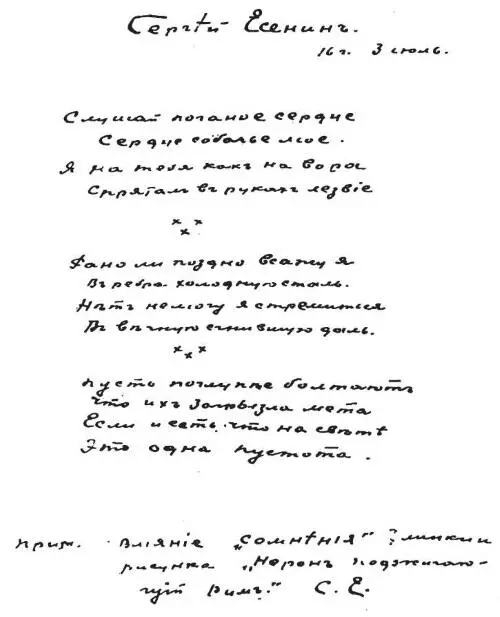 Сергѣй Есенинъ.
16 г. 3 июль.
Слушай поганое сердце
Сердце собачье мое.
Я на тебя какъ на вора
Спряталъ въ рукахъ лезвіе
x x
x
Рано ли поздно всажу я
Въ ребра холодную сталь.
Нѣтъ не могу я стремиться
Въ вѣчную сгнившую даль.
x x
x
Пусть поглупѣе болтаютъ
Что ихъ загрызла мета
Если и есть что на свѣтѣ
Это одна пустота.
Прим. Вліяніе „Сомнѣнія" Глинки и
рисунка „Неронъ поджигаю-
щій Римъ." С. Е.